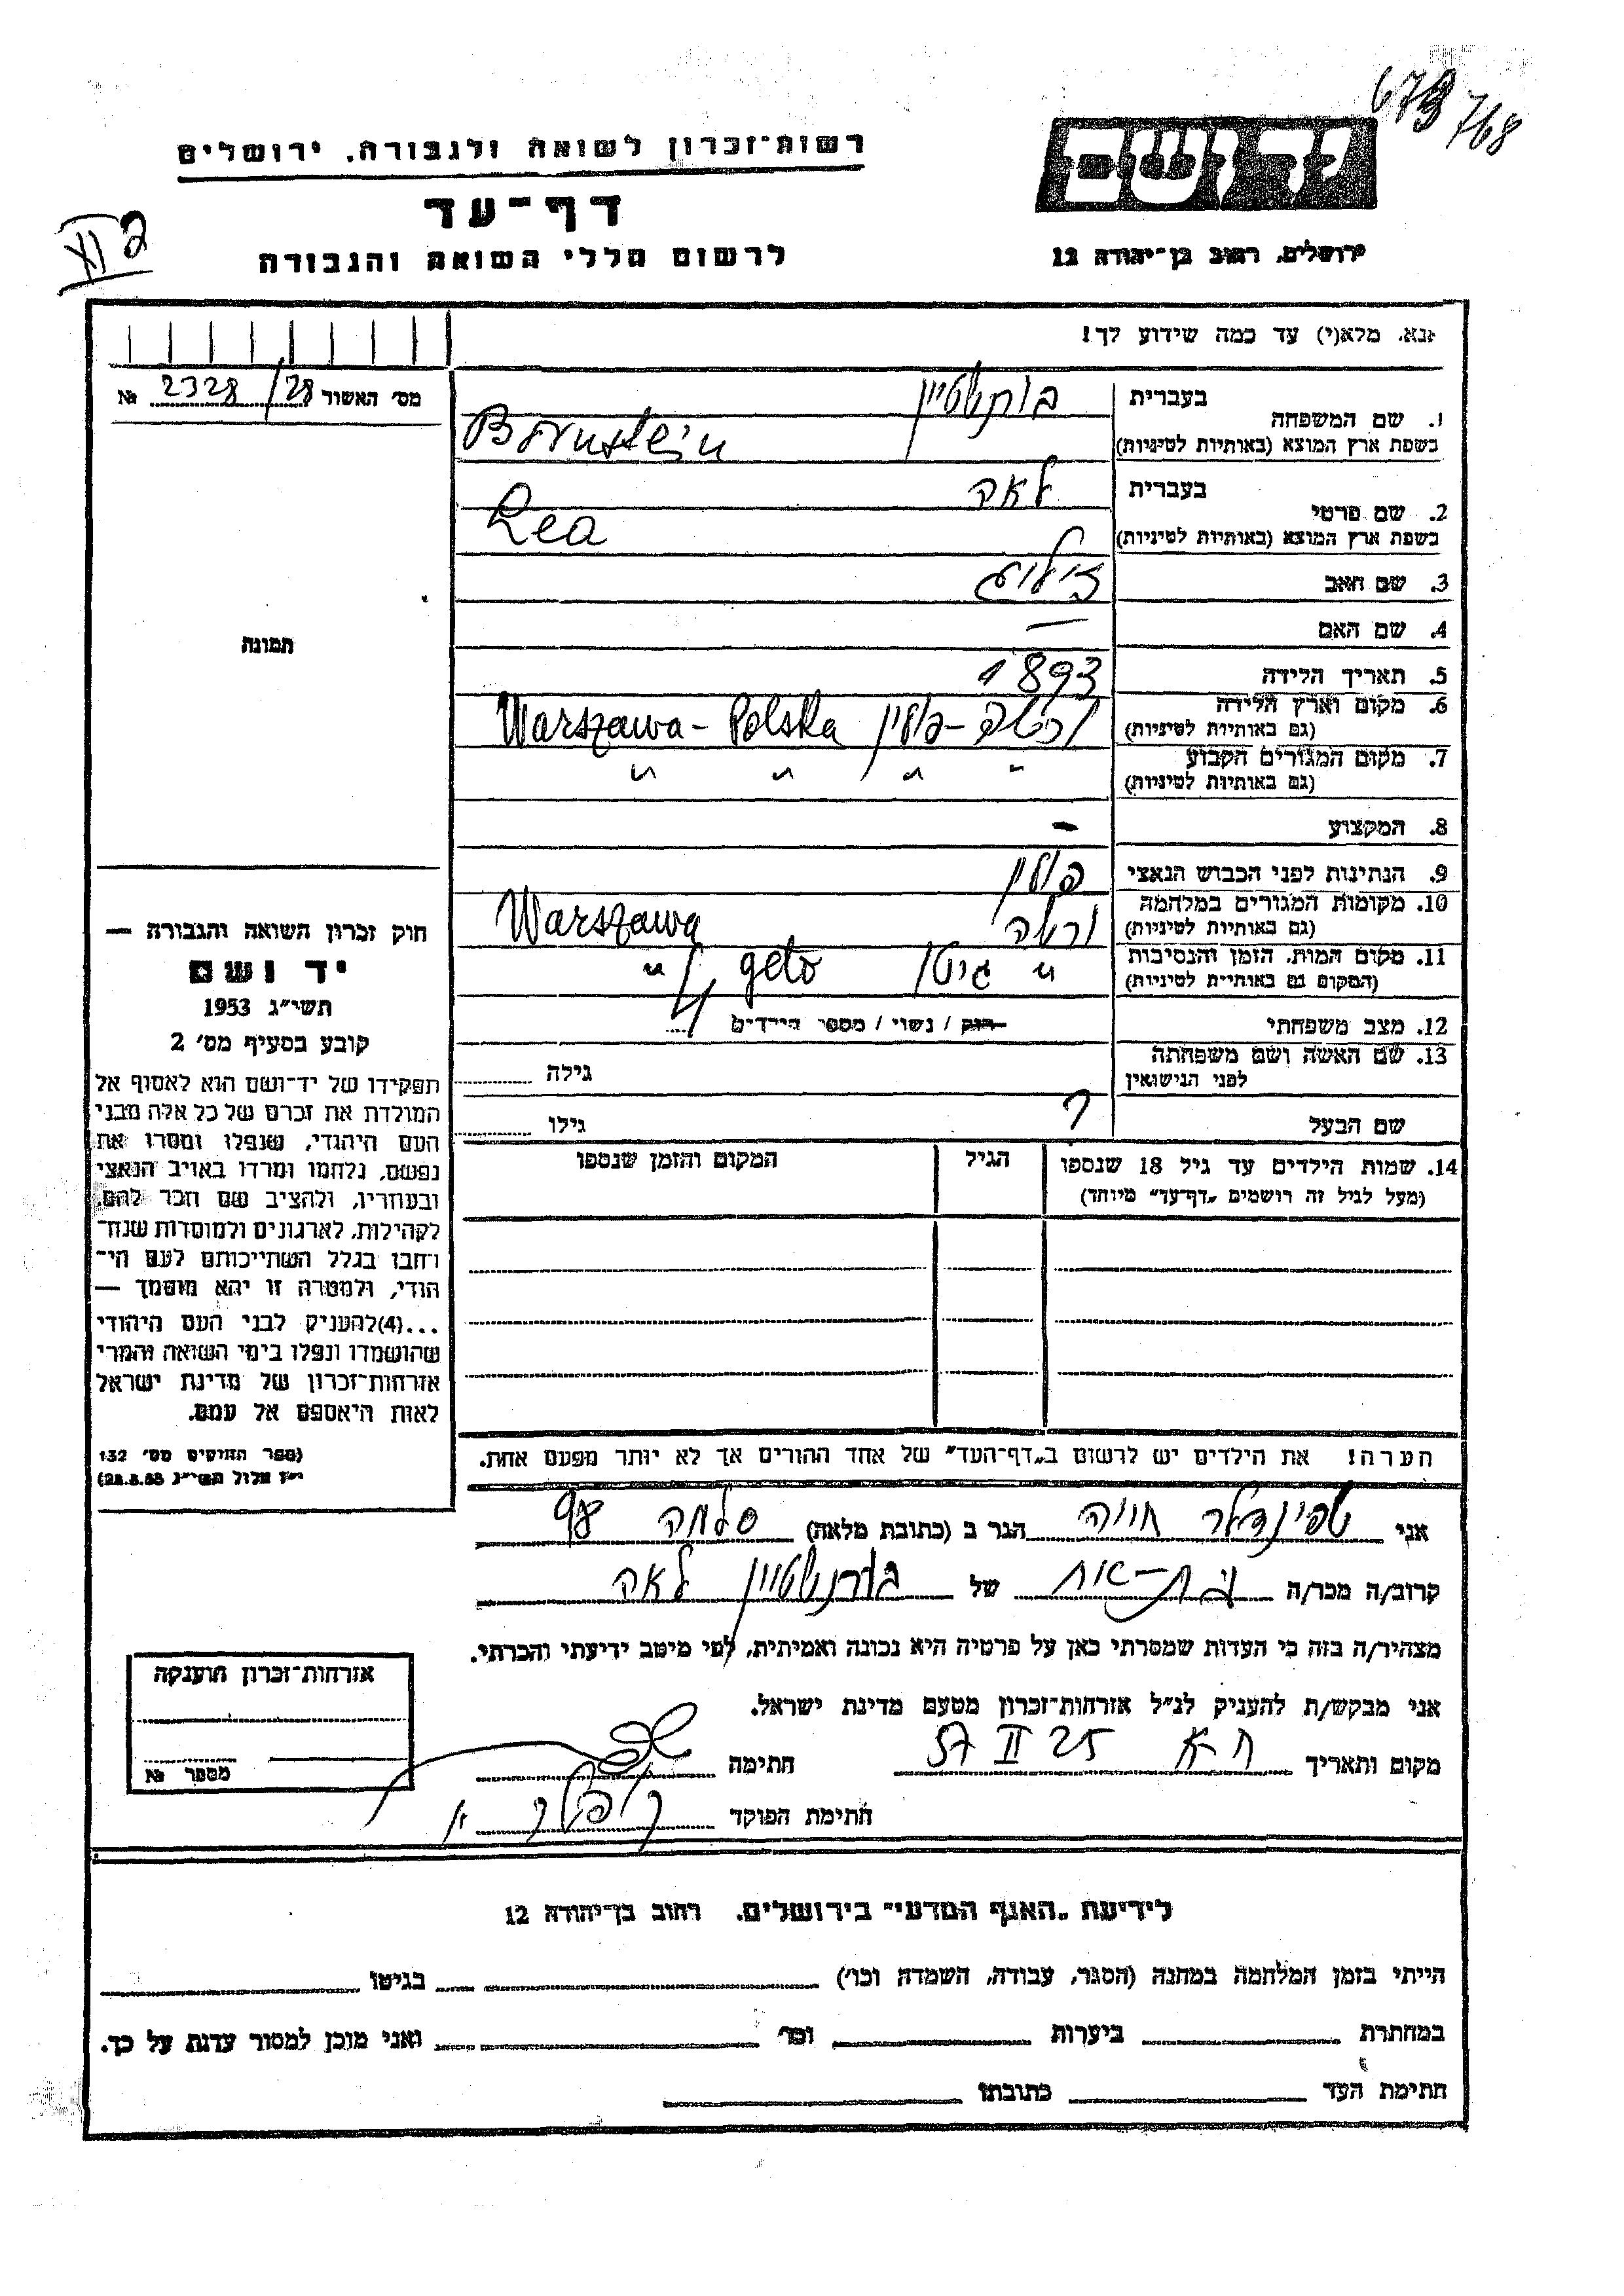 768
יד ושם
רשות־זכרון לשואה ולגבורה, ירושלים
דף־עד
לרשום חללי השואה והגבורה
ירושלים, רחוב בן־יהודה 12
אנא, מלא(י) עד כמה שידוע לך!
מס׳ האשור 2328/28 №
1. שם המשפחה
בעברית
בורנשטיין
בשפת ארץ המוצא (באותיות לטיניות)
Bornstein
2. שם פרטי
בעברית
לאה
בשפת ארץ המוצא (באותיות לטיניות)
Lea
3. שם האב
זליג
4. שם האם —
5. תאריך הלידה 1893
6. מקום וארץ הלידה
(גם באותיות לטיניות)
ורשה - פולין Warszawa - Polska
7. מקום המגורים הקבוע
(גם באותיות לטיניות)
" " " "
8. המקצוע -
9. הנתינות לפני הכבוש הנאצי פולין
10. מקומות המגורים במלחמה
(גם באותיות לטיניות)
ורשה Warszawa
11. מקום המות, הזמן והנסיבות
(המקום גם באותיות לטיניות)
" גיטו geto "
12. מצב משפחתי רווק / נשוי / מספר הילדים 4
13. שם האשה ושם משפחתה
לפני הנישואין
גילה
שם הבעל ? גילו
14. שמות הילדים עד גיל 18 שנספו
(מעל לגיל זה רושמים „דף־עד״ מיוחד)
הגיל
המקום והזמן שנספו
הערה! את הילדים יש לרשום ב„דף־העד״ של אחד ההורים אך לא יותר מפעם אחת.
תמונה
חוק זכרון השואה והגבורה —
יד ושם
תשי״ג 1953
קובע בסעיף מס׳ 2
תפקידו של יד־ושם הוא לאסוף אל
המולדת את זכרם של כל אלה מבני
העם היהודי, שנפלו ומסרו את
נפשם, נלחמו ומרדו באויב הנאצי
ובעוזריו, ולהציב שם וזכר להם,
לקהילות, לארגונים ולמוסדות שנח־
רבו בגלל השתייכותם לעם הי־
הודי, ולמטרה זו יהא מוסמך —
...(4)להעניק לבני העם היהודי
שהושמדו ונפלו בימי השואה והמרי
אזרחות־זכרון של מדינת ישראל
לאות היאספם אל עמם.
(ספר החוקים מס׳ 132
י״ז אלול תשי״ג 28.8.53)
אני שפינדלר חייה הגר ב (כתובת מלאה) סלמה 98
קרוב/ה מכר/ה בת-אח של בורנשטיין לאה
מצהיר/ה בזה כי העדות שמסרתי כאן על פרטיה היא נכונה ואמיתית, לפי מיטב ידיעתי והכרתי.
אני מבקש/ת להעניק לנ״ל אזרחות־זכרון מטעם מדינת ישראל.
מקום ותאריך ת-א 25 II 57 חתימה
חתימת הפוקד
אזרחות־זכרון הוענקה
מספר №
לידיעת „האגף המדעי״ בירושלים, רחוב בן־יהודה 12
הייתי בזמן המלחמה במחנה (הסגר, עבודה, השמדה וכו׳) בגיטו
במחתרת ביערות וכו׳ ואני מוכן למסור עדות על כך.
חתימת העד כתובתו